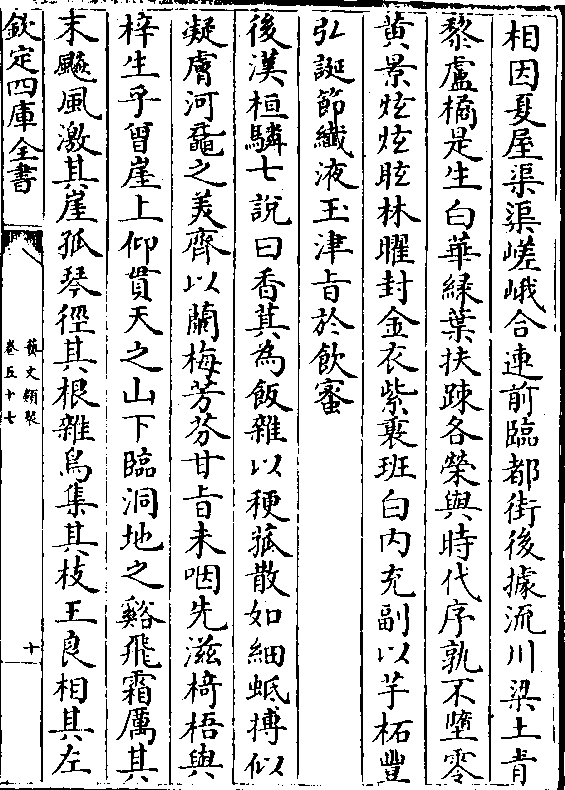 相因夏屋渠渠嵯峨合連前臨都街後據流川梁土青
黎盧橘是生白華緑葉扶踈各榮與時代序孰不墮零
黄景炫炫眩林曜封金衣紫裹班白内充副以芋柘豐
弘誕節纖液玉津㫖於飲蜜
後漢桓驎七説曰香萁為飯雜以粳菰散如細蚳搏似
凝膚河黿之羙齊以蘭梅芳芬甘㫖未咽先滋椅梧與
梓生乎曾崖上仰貫天之山下臨洞地之谿飛霜厲其
末飈風激其崖孤琴徑其根雜鳥集其枝王良相其左
欽定四庫全書
藝文類聚
卷五十七
十